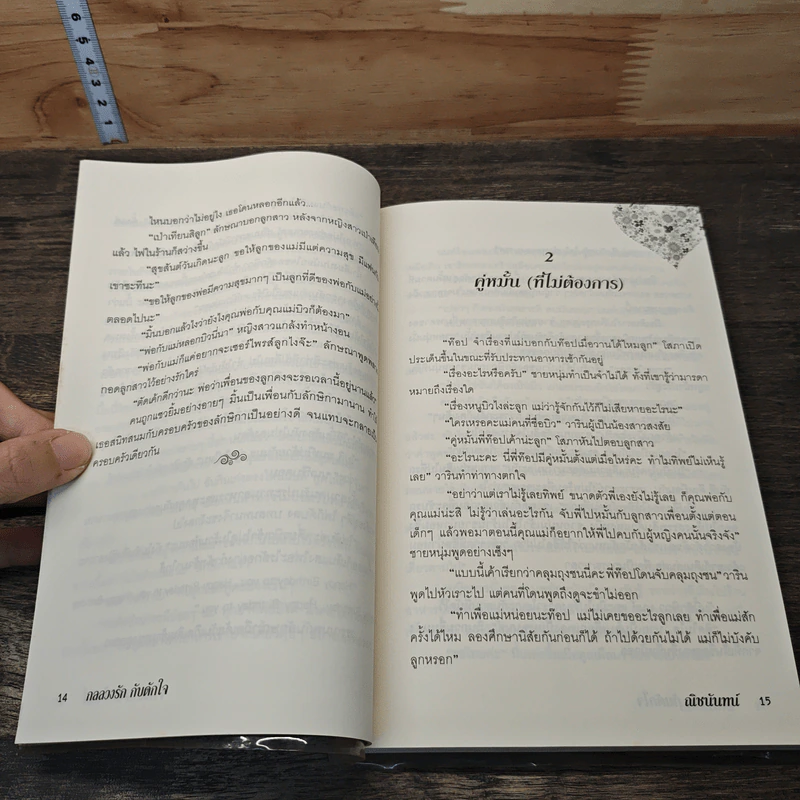 6
5
4
3
2
1
ไหนบอกว่าไม่อยู่ไง เธอโดนหลอกอีกแล้ว...
"เป่าเทียนสิลูก" ลักษณาบอกลูกสาว หลังจากหญิงสาวเป่า
แล้ว ไฟในร้านก็สว่างขึ้น
"สุขสันต์วันเกิดนะลูก ขอให้ลูกของแม่มีแต่ความสุข
เขาซะทีนะ"
"ขอให้ลูกของพ่อมีความสุขมากๆ เป็นลูกที่ดีของพ่อกับแม่
ตลอดไปนะ"
"มิ้นบอกแล้วไงว่ายังไงคุณพ่อกับคุณแม่บิวก็ต้องมา"
"พ่อกับแม่หลอกบิวนี่นา" หญิงสาวแกล้งทำหน้างอน
"พ่อกับแม่ก็แค่อยากจะเซอร์ไพรส์ลูกไงจ๊ะ" ลักษณา
กอดลูกสาวไว้อย่างรักใคร่
"ตัดเค้กดีกว่านะ พ่อว่าเพื่อนของลูกคงจะรอเวลานี้อยู่นานแล้ว
คนถูกแซวยิ้มอย่างอายๆ มิ้นเป็นเพื่อนกับลักษิกามานาน
เธอสนิทสนมกับครอบครัวของลักษิกาเป็นอย่างดี จนแทบจะกลาย
ครอบครัวเดียวกัน
14 กลลวงรัก กับดักใจ
2
คู่หมั้น (ที่ไม่ต้องการ)
"ท๊อป จำเรื่องที่แม่บอกกับท๊อปเมื่อวานได้ไหมลูก" โสภาเปิด
ประเด็นขึ้นในขณะที่รับประทานอาหารเช้ากันอยู่
"เรื่องอะไรหรือครับ" ชายหนุ่มทำเป็นจำไม่ได้ ทั้งที่เขารู้ว่ามารดา
หมายถึงเรื่องใด
"เรื่องหนูบิวไงล่ะลูก แม่ว่ารู้จักกันไว้ก็ไม่เสียหายอะไรนะ"
"ใครเหรอคะแม่คนที่ชื่อบิว" วารินผู้เป็นน้องสาวสงสัย
"คู่หมั้นพี่ท๊อปเค้าน่ะลูก" โสภาหันไปตอบลูกสาว
"อะไรนะคะ นี่พี่ท๊อปมีคู่หมั้นตั้งแต่เมื่อไหร่คะ ทำไมทิพย์ไม่เห็นรู้
เลย" วารินทำท่าทางตกใจ
"อย่าว่าแต่เราไม่รู้เลยทิพย์ ขนาดตัวพี่เองยังไม่รู้เลย ก็คุณพ่อกับ
คุณแม่น่ะสิ ไม่รู้ว่าเล่นอะไรกัน จับพี่ไปหมั้นกับลูกสาวเพื่อนตั้งแต่ตอน
เด็กๆ แล้วพอมาตอนนี้คุณแม่ก็อยากให้พี่ไปคบกับผู้หญิงคนนั้นจริงจัง"
ชายหนุ่มพูดอย่างเซ็งๆ
"แบบนี้เค้าเรียกว่าคลุมถุงชนนี่คะพี่ท๊อปโดนจับคลุมถุงชน"วาริน
พูดไปหัวเราะไป แต่คนที่โดนพูดถึงดูจะขำไม่ออก
"ทำเพื่อแม่หน่อยนะท๊อป แม่ไม่เคยขออะไรลูกเลย ทำเพื่อแม่สัก
ครั้งได้ไหม ลองศึกษานิสัยกันก่อนก็ได้ ถ้าไปด้วยกันไม่ได้ แม่ก็ไม่บังคับ
ลูกหรอก"
ณิชนันทน์ 15